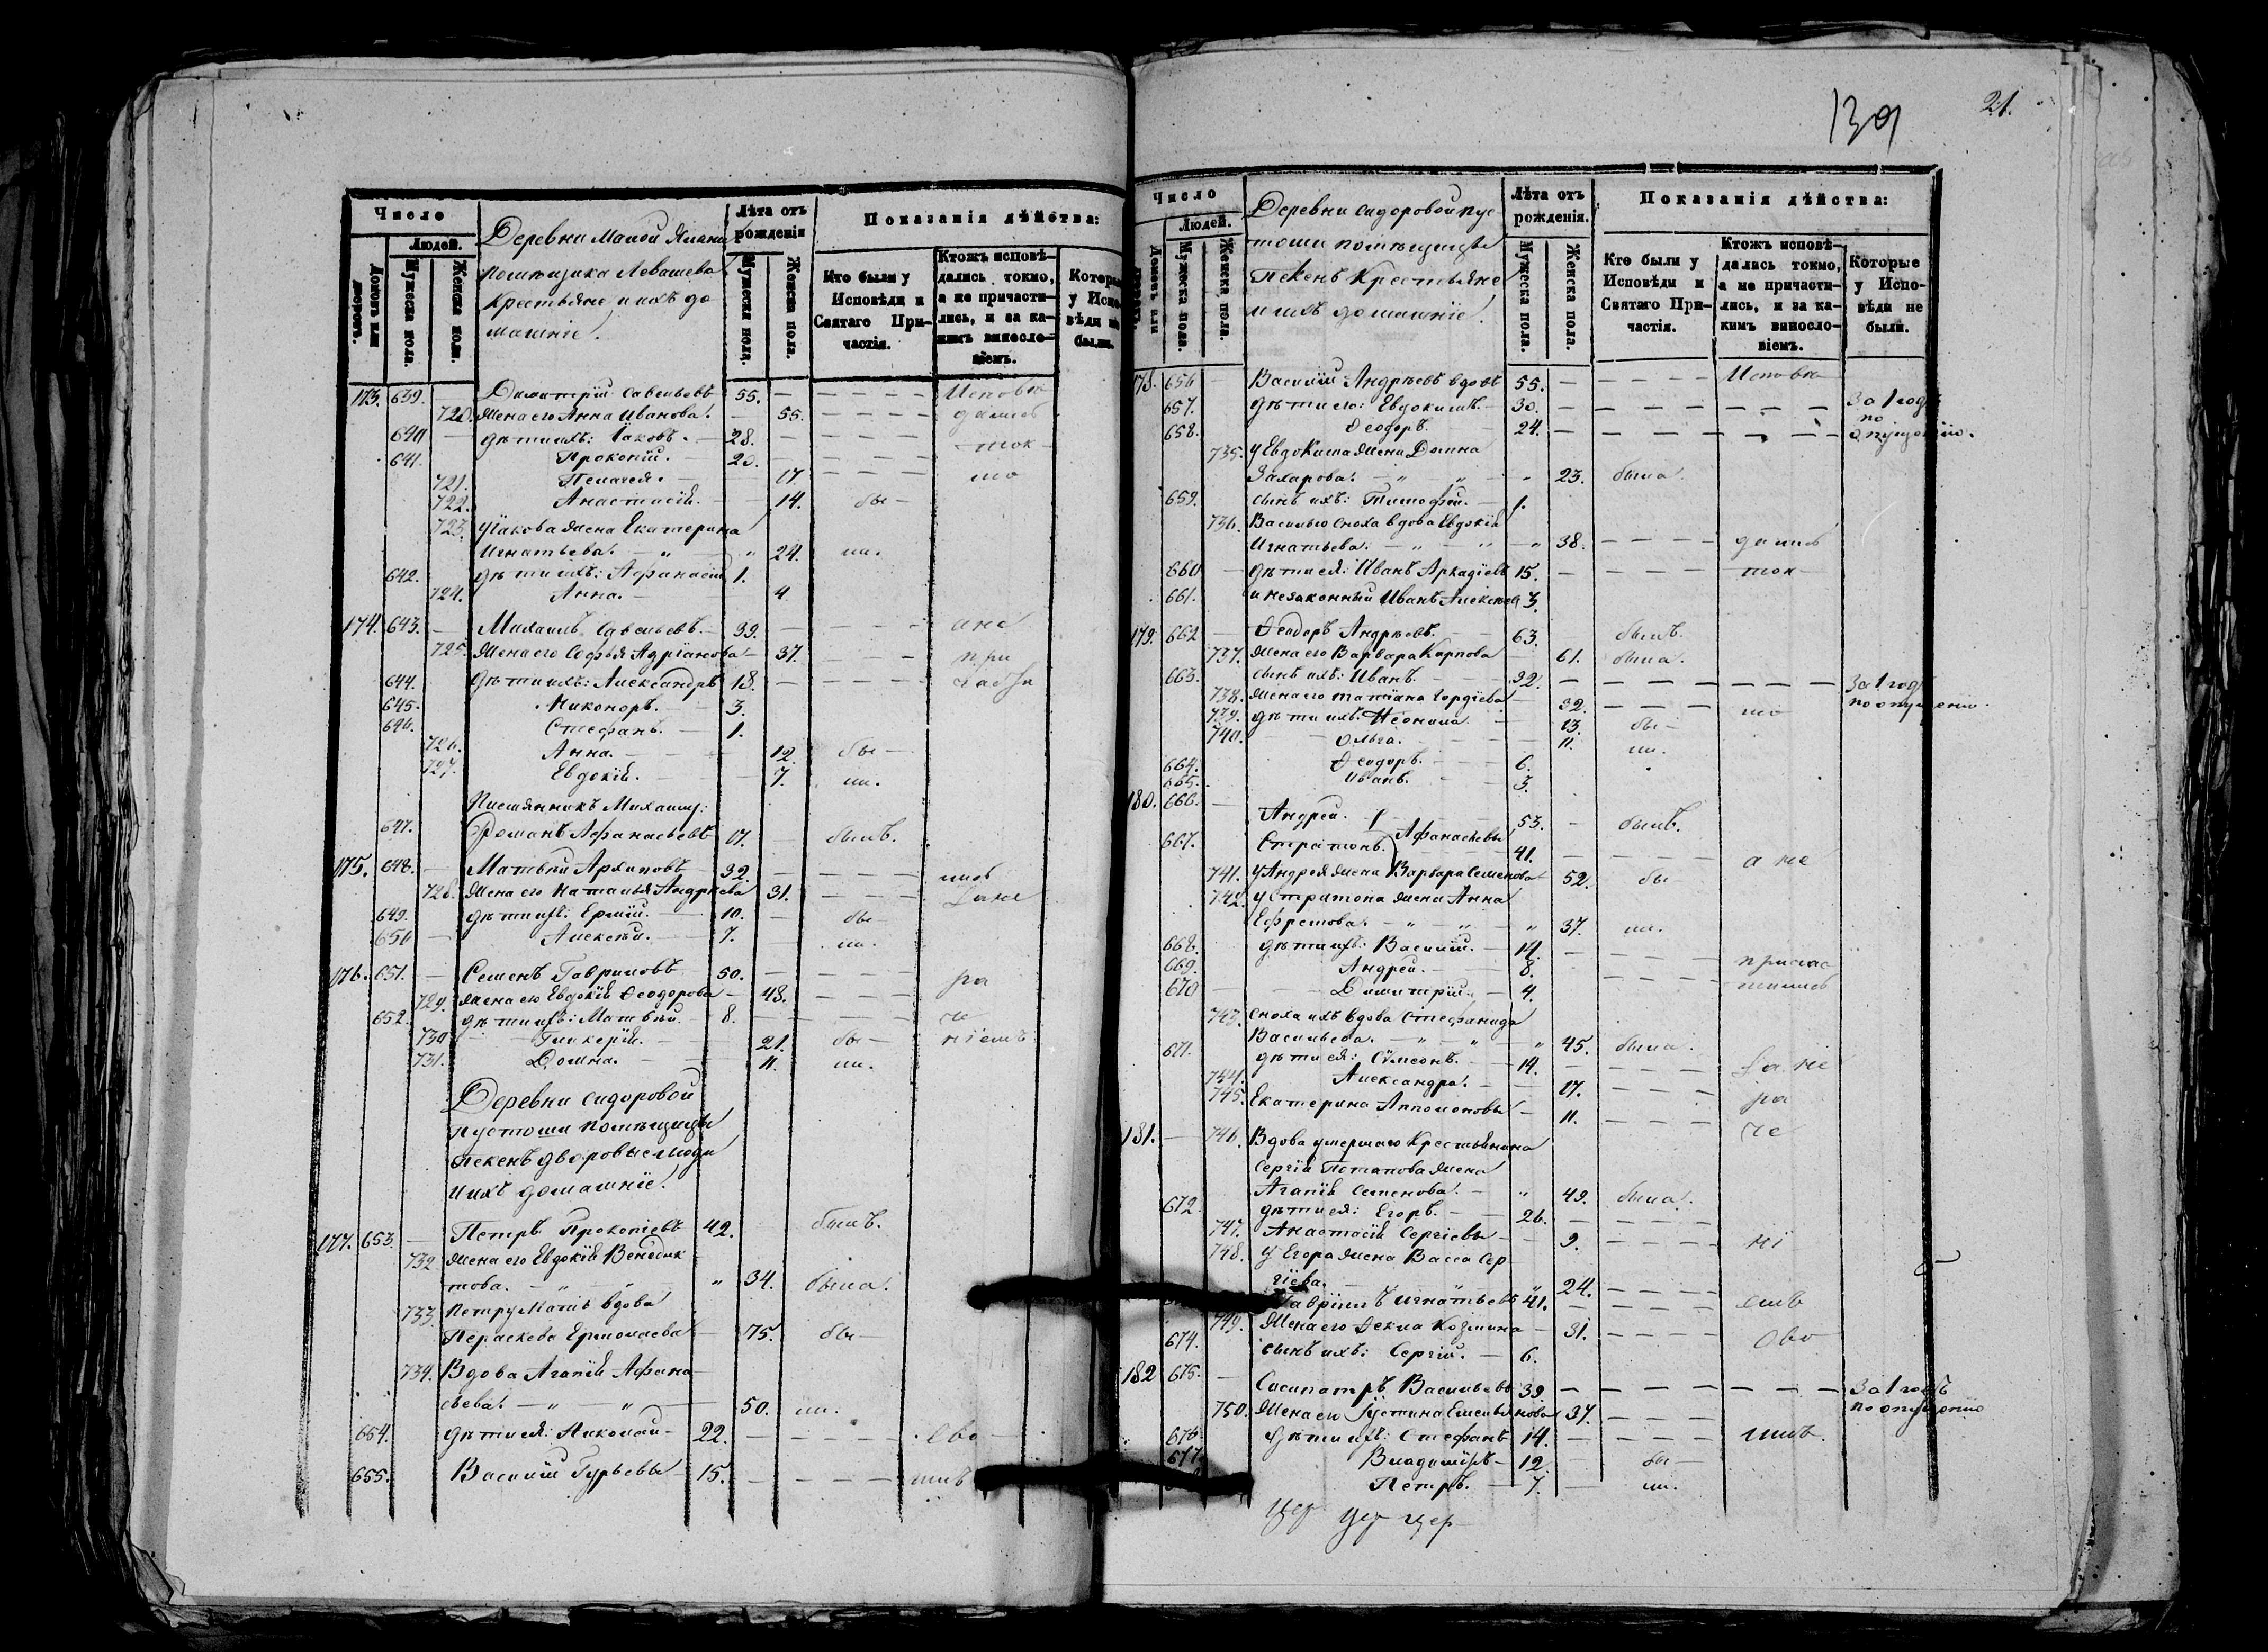 139
21.
Число
Людей.
Домовъ или дворовъ.
Мужеска пола.
Женска пола.
Деревни Малой
помѣщика Левашева
Крестьяне и ихъ до
машніе.
Лѣта отъ рожденія
Мужеска пола.
Женска пола.
Показанія дѣйства:
Кто были у Исповѣди и Святаго Причастія.
Ктожъ исповѣдались токмо, а не причастились, и за какимъ винословіемъ.
Которые у Исповѣди не были.
173. 639. — Димитрій Савельевъ 55. — Испові
720. Жена его Анна Иванова. — 55. — дались
640 — дѣти ихъ: Іаковъ. — 28. — ток
641. Прокопій. — 20. —
721. Пелагея. — 17 — мо
722. Анастасія. — 14. бы —
723. У Іакова жена Екатерина
Игнатьева. — „ — „ 24. ли.
642. дѣти ихъ: Афанасій 1.
724. Анна. — 4
174. 643. — Михаилъ Савельевъ. — 39. — а не
725. Жена его Софья Адріанова — 37. — при
644. дѣти ихъ: Александръ 18. —
645. Никаноръ. — 3.
646. Стефанъ. — 1.
726. Анна. — 12. бы —
727. Евдокія. — 7. ли.
Племянникъ Михаилу:
647. Романъ Афанасьевъ 17. — былъ.
175. 648. — Матвѣй Архиповъ 32. — лись
728. Жена его Наталья Андреева 31. — за не
649. дѣти ихъ: Ермій. — 10. — бы —
650 — Алексѣй. — 7. — ли.
176. 651. — Семенъ Гавриловъ 50. — ра
729. Жена его Евдокія Феодорова — 48. —
652. дѣти ихъ: Матвѣй. — 8. — че
730 Гликерія. — 21. бы — ніемъ
731. Домна. — 11. ли.
Деревни Сидоровой
пустоши помѣщицы
Пекенъ дворовые люди
и ихъ домашніе.
177. 653. — Петръ Прокопіевъ 42. — былъ.
732 Жена его Евдокія Венедик
това. — „ — „ „ 34. была.
733. Петру мать вдова
Пераскева Ермолаева — 75. бы —
734. Вдова Агапія Афана
сьева. — „ — „ — 50. ли.
654. дѣти ея: Николай — 22. — Ево
655. Василій Гурьевы 15. — лись
Число
Людей.
Домовъ или дворовъ.
Мужеска пола.
Женска пола.
Деревни Сидоровой пус
тоши помѣщицы
Пекенъ Крестьяне
и ихъ домашніе.
Лѣта отъ рожденія.
Мужеска пола.
Женска пола.
Показанія дѣйства:
Кто были у Исповѣди и Святаго Причастія.
Ктожъ исповѣдались токмо, а не причастились, и за какимъ винословіемъ.
Которые у Исповѣди не были.
178. 656 — Василій Андреевъ вдовъ 55. — Испові
657. дѣти его: Евдокимъ. — 30. — За 1 годъ
по
658. Феодоръ. 24. — опущенію.
735. У Евдокима жена Домна
Захарова. „ — „ — „ 23. была.
659. сынъ ихъ: Тимофей. — 1.
736. Василью сноха вдова Евдокія
Игнатьева. — „ — „ 38. — дались
660 — дѣти ея: Иванъ Аркадіевъ 15. — ток
661. и незаконный Иванъ Алексѣевъ 3.
179. 662 — Феодоръ Андреевъ. — 63. — былъ.
737. Жена его Варвара Карпова — 61. была.
663. сынъ ихъ: Иванъ. — 32. — За 1 годъ
738. Жена его Татіана Гордіева — 32. — мо по опущенію.
739. дѣти ихъ: Неонила. — 13. бы —
740. Ольга. — 11. ли.
664. Феодоръ. — 6.
665. Иванъ. — 3.
180. 666. — Андрей. — 53. — былъ.
Афанасьевы
667. Стратонъ. — 41. — а не
741. У Андрея жена Варвара Семенова 52. бы —
742. У Стратона жена Анна
Ефремова. — „ — „ 37. ли.
668. дѣти ихъ: Василій. — 14. —
669. Андрей. — 8. — причас
670 — Димитрій. — 4. — тились
743. Сноха ихъ вдова Стефанида
Васильева. — „ — „ 45. была.
671. дѣти ея: Сѵмеонъ. — 14. — за не
744. Александра. — 17. — ра
745. Екатерина Аполоновы — 11. — че
181. — 746. Вдова умершаго Крестьянина
Сергія Потапова жена
Агапія Семенова. — „ 49. была.
672. дѣти ея: Егоръ. — 26. —
747. Анастасія Сергіевы — 9. — ні
748. У Егора жена Васса Сер
гіева. — „ „ 24. —
Гавріилъ Игнатьевъ 41. — емъ
749. Жена его Фекла Козмина — 31. —
674. сынъ ихъ: Сергій. — 6. Ово
182 675. — Сосипатръ Васильевъ 39 — За 1 годъ
750. Жена его Іустина Емельянова 37. — по опущенію
676 дѣти ихъ: Стефанъ 14. — лись.
677. Владиміръ — 12. — бы —
Петръ. — 7. — ли.